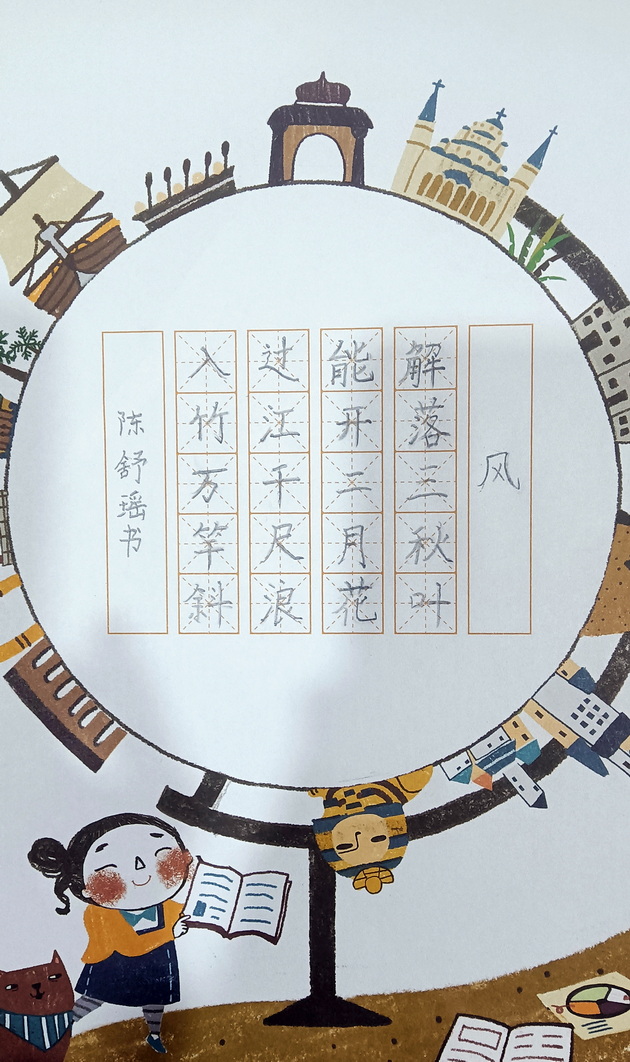 风
解落三秋叶
能开二月花
过江千尺浪
入竹万竿斜
陈舒瑶书